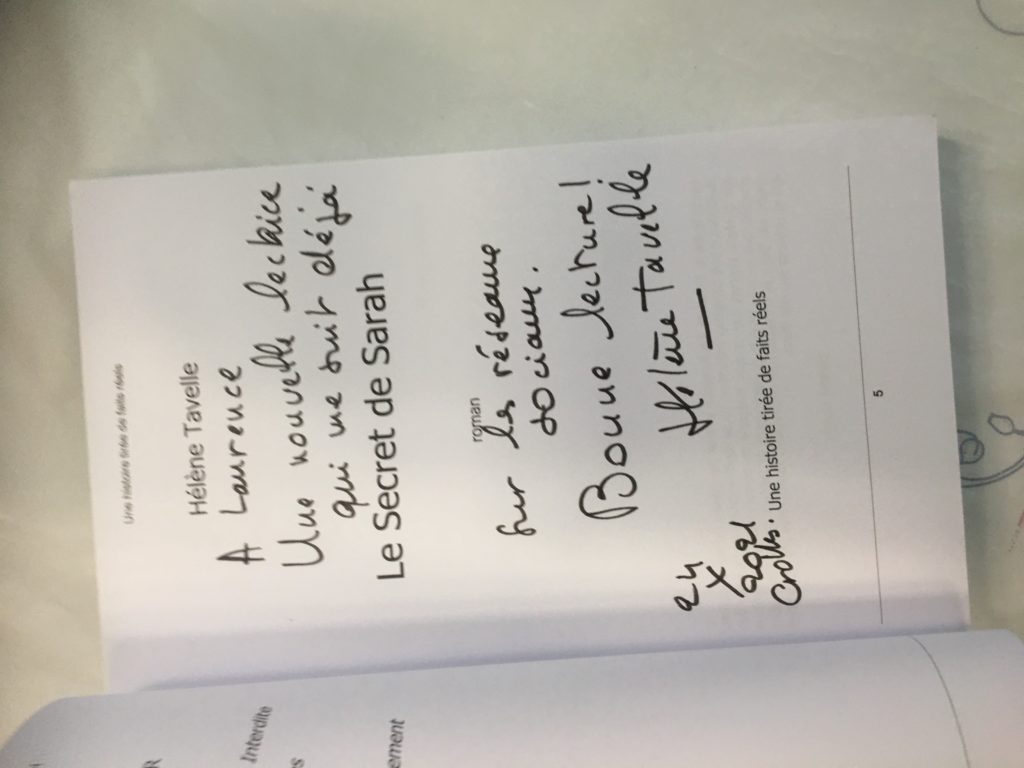 Une histoire tirée de faits réels
Hélène Tavelle
A Laurence
Une nouvelle lectrice
qui me suit déjà
Le Secret de Sarah
roman
sur les réseaux
sociaux.
Bonne lecture!
Hélène Tavelle
24
X
2021
Crolles.
Une histoire tirée de faits réels
5
R
Interdite
s
ement